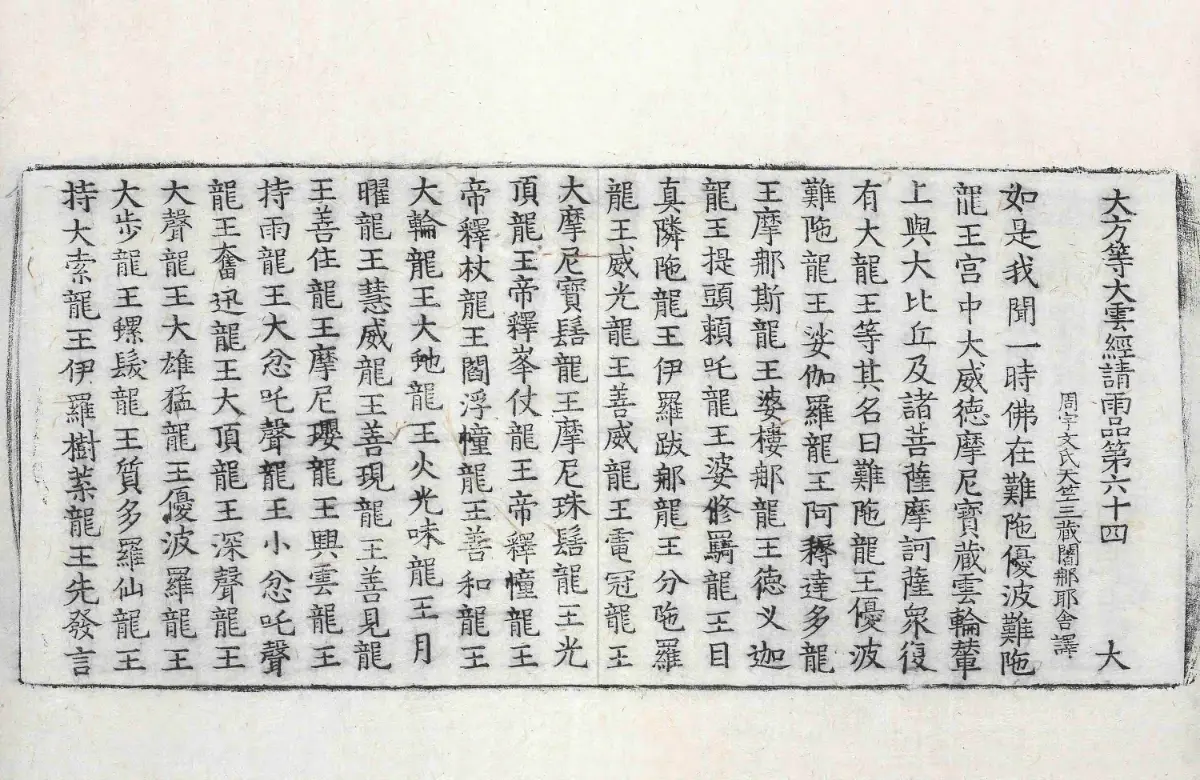 大方等大雲經請雨品第六十四　大
周宇文氏天竺三藏闍那耶舍譯
如是我聞一時佛在難陁優波難陁
龍王宮中大威德摩尼寶藏雲輪輦
上與大比丘及諸菩薩摩訶薩衆復
有大龍王等其名曰難陁龍王優波
難陁龍王娑伽羅龍王阿耨達多龍
王摩那斯龍王婆樓那龍王德义迦
龍王提頭賴吒龍王婆修羇龍王目
真隣陁龍王伊羅跋那龍王分陁羅
龍王威光龍王善威龍王電冠龍王
大摩尼寶髻龍王摩尼珠髻龍王光
頂龍王帝釋峯仗龍王帝釋幢龍王
帝釋杖龍王閻浮幢龍王善和龍王
大輪龍王大虵龍王火光味龍王月
曜龍王慧威龍王善現龍王善見龍
王善住龍王摩尼瓔龍王興雲龍王
持雨龍王大忿吒聲龍王小忿吒聲
龍王奮迅龍王大頂龍王深聲龍王
大聲龍王大雄猛龍王優波羅龍王
大步龍王螺髮龍王質多羅仙龍王
持大索龍王伊羅樹葉龍王先發言